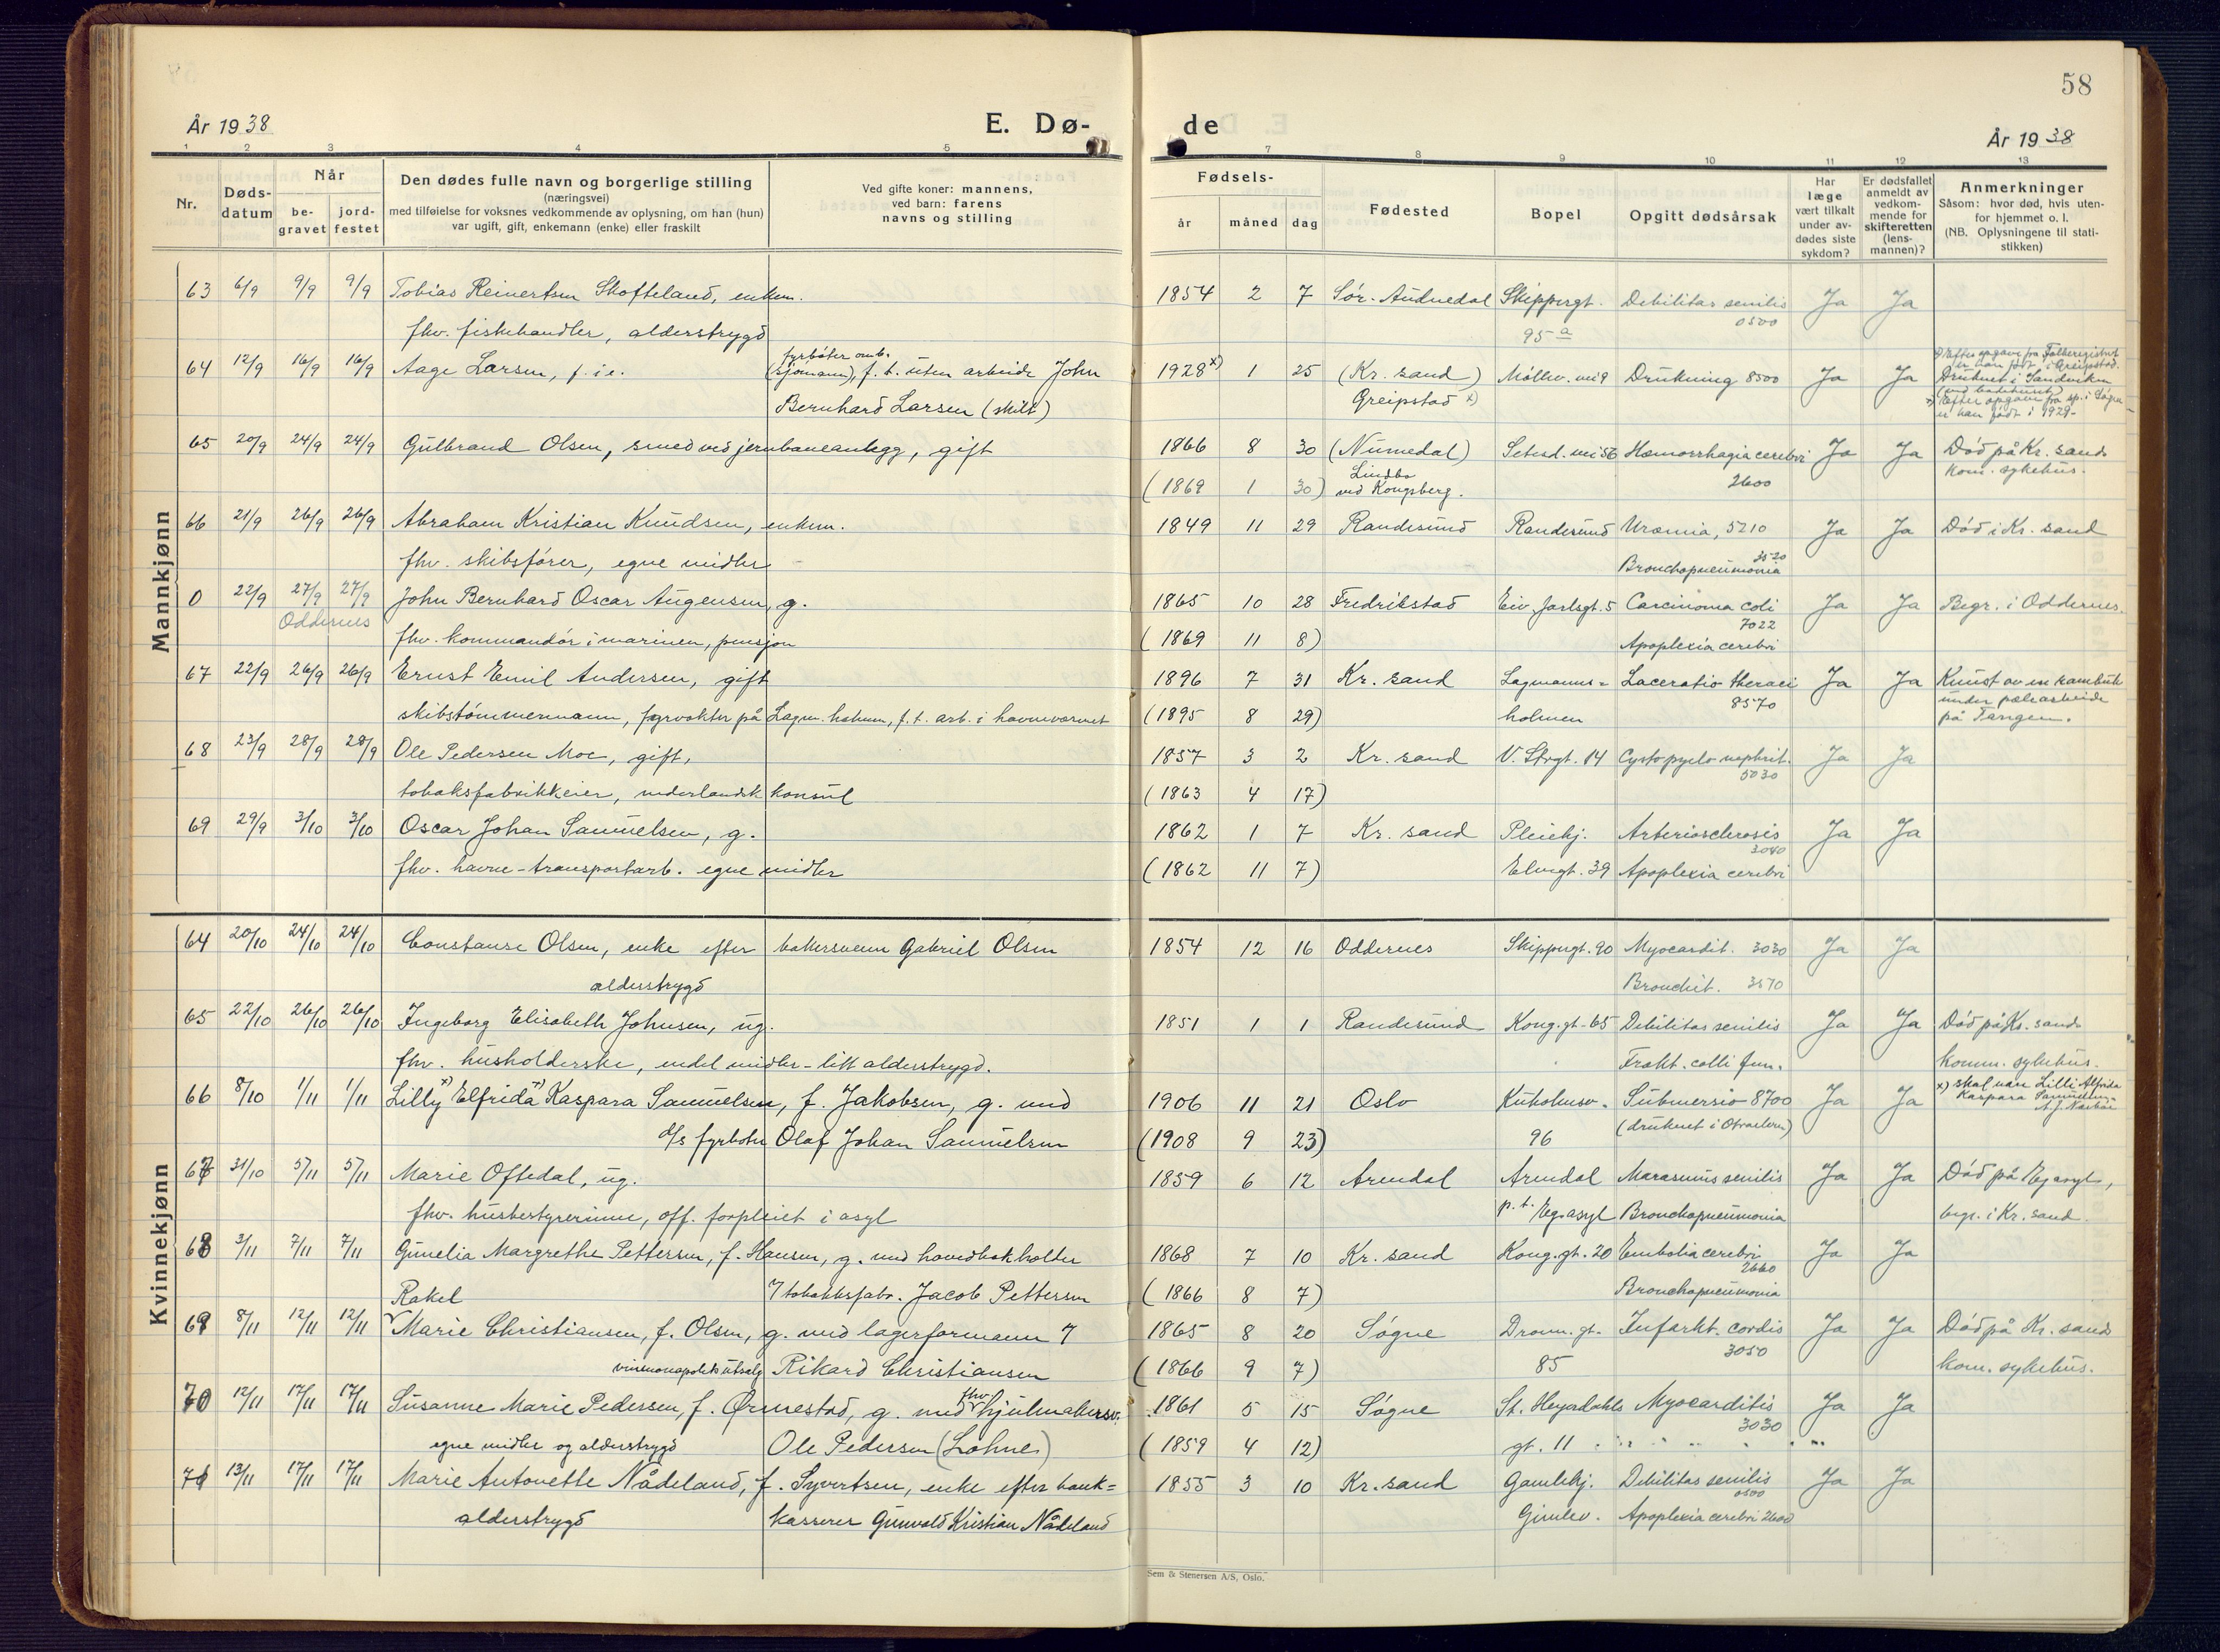 58
År 1938
E. Dø-
de
År 1938
1 2 3 4 5
7 8 9 10 11 12 13
Nr.
Døds-
datum
Når
be-
gravet
jord-
festet
Den dødes fulle navn og borgerlige stilling
(næringsvei)
med tilføielse for voksnes vedkommende av oplysning, om han (hun)
var ugift, gift, enkemann (enke) eller fraskilt
Ved gifte koner: mannens,
ved barn: farens
navns og stilling
Fødsels-
år måned dag
Fødested
Bopel
Opgitt dødsårsak
Har
læge
vært tilkalt
under av-
dødes siste
sykdom?
Er dødsfallet
anmeldt av
vedkom-
mende for
skifteretten
(lens-
mannen)?
Anmerkninger
Såsom: hvor død, hvis uten-
for hjemmet o. l.
(NB. Oplysningene til stati-
stikken)
Mannkjønn
63 6/9 9/9 9/9 Tobias Reinertsen Skofteland, enkem. 1854 2 7 Sør-Audnedal Skippergt. Debilitas senilis Ja Ja
fhv. fiskehandler, alderstrygd 95 a 0500
64 12/9 16/9 16/9 Aage Larsen, f. i e. fyrbøter omb.
(sjømann), f. t. uten arbeide John 1928 x) 1 25 (Kr. sand) Møllev. vei 9 Drukning 8500 Ja Ja
Bernhard Larsen (skilt) Greipstad x)
Efter opgave fra Folkeregistret
er han født i Greipstad.
Druknet i Sandviken
x) Efter opgave fra sp. i Søgne
er han født i 1929-
65 20/9 24/9 24/9 Gulbrand Olsen, smed ved jernbaneanlegg, gift 1866 8 30 (Numedal) Setesd. vei 56 Hæmorrhagia cerebri Ja Ja Død på Kr. sands
kom. sykehus.
(1869 1 30) Lindbo
ved Kongsberg. 2600
66 21/9 26/9 26/9 Abraham Kristian Knudsen, enkem. 1849 11 29 Randesund Randesund Uræmia, 5210 Ja Ja Død i Kr. sand
fhv. skibsfører, egne midler Bronchopneumonia 3520
0 22/9 27/9 27/9 John Bernhard Oscar Augensen, g. 1865 10 28 Fredrikstad Eiv. Jarlsgt. 5 Carcinoma coli Ja Ja Begr. i Oddernes.
Oddernes 7022
fhv. kommandør i marinen, pensjon (1869 11 8) Apoplexia cerebri
67 22/9 26/9 26/9 Ernst Emil Andersen, gift 1896 7 31 Kr. sand Lagmanns= Laceratio thoraci Ja Ja Knust av en rambuk
under pælearbeide
på Tangen.
skibstømmermann, fyrvokter på Lagm. holmen, f. t. arb. i havnevæsenet (1895 8 29) holmen 8570
68 23/9 28/9 28/9 Ole Pedersen Moe, gift, 1857 3 2 Kr. sand V. Strgt. 14 Cystopyelo nephrit. Ja Ja
5030
tobaksfabrikkeier, nederlandsk konsul (1863 4 17)
69 29/9 3/10 3/10 Oscar Johan Samuelsen, g. 1862 1 7 Kr. sand Pleiehj. Arteriosclerosis Ja Ja
3040
fhv. havne-transportarb. egne midler (1862 11 7) Elvegt. 39 Apoplexia cerebri
Kvinnekjønn
64 20/10 24/10 24/10 Constanse Olsen, enke efter bakersvenn Gabriel Olsen 1854 12 16 Oddernes Skippergt. 90 Myocardit. 3030 Ja Ja
alderstrygd Bronchit. 3570
65 22/10 26/10 26/10 Ingeborg Elisabeth Johnsen, ug. 1851 1 1 Randesund Kong.gt. 65 Debilitas senilis Ja Ja Død på Kr. sands
fhv. husholderske, endel midler - litt alderstrygd. Frakt. colli fem. komm. sykehus.
66 8/10 1/11 1/11 Lilly x) Elfrida x) Kaspara Samuelsen, f. Jakobsen, g. med 1906 11 21 Oslo Kuholmsv. Submersio 8700 Ja Ja x) skal være Lilli Alfrida
Kaspara Samuelsen
d/s fyrbøter Olaf Johan Samuelsen (1908 9 23) 96 (druknet i Otraelven)
67 31/10 5/11 5/11 Marie Oftedal, ug. 1859 6 12 Arendal Arendal Marasmus senilis Ja Ja Død på Eg asyl,
fhv. husbestyrerinne, off. forpleiet i asyl p. t. Eg. asyl Bronchopneumonia begr. i Kr. sand.
68 3/11 7/11 7/11 Gunelia Margrethe Pettersen, f. Hansen, g. med hovedbokholder 1868 7 10 Kr. sand Kong. gt. 20 Embolia cerebri Ja Ja
2660
Rakel i tobakksfabr. Jacob Pettersen (1866 8 7) Bronchopneumonia
69 8/11 12/11 12/11 Marie Christiansen, f. Olsen, g. med lagerformann i 1865 8 20 Søgne Dronn. gt. Infarkt. cordis Ja Ja Død på Kr. sands
3050
vinmonopolets utsalg Rikard Christiansen (1866 9 7) 85 kom. sykehus.
70 12/11 17/11 17/11 Susanne Marie Pedersen, f. Ørnestad, g. med fhv. hjulmakersv. 1861 5 15 Søgne St. Heyerdahls Myocarditis Ja Ja
3030
egne midler og alderstrygd Ole Pedersen (Lohne) (1859 4 12) gt. 11
71 13/11 17/11 17/11 Marie Antonette Nådeland, f. Syvertsen, enke efter bank= 1855 3 10 Kr. sand Gamlehj. Debilitas senilis Ja Ja
0500
alderstrygd kasserer Gunvald Kristian Nådeland Gimlev. Apoplexia cerebri 2600
Sem & Stenersen A/S, Oslo.